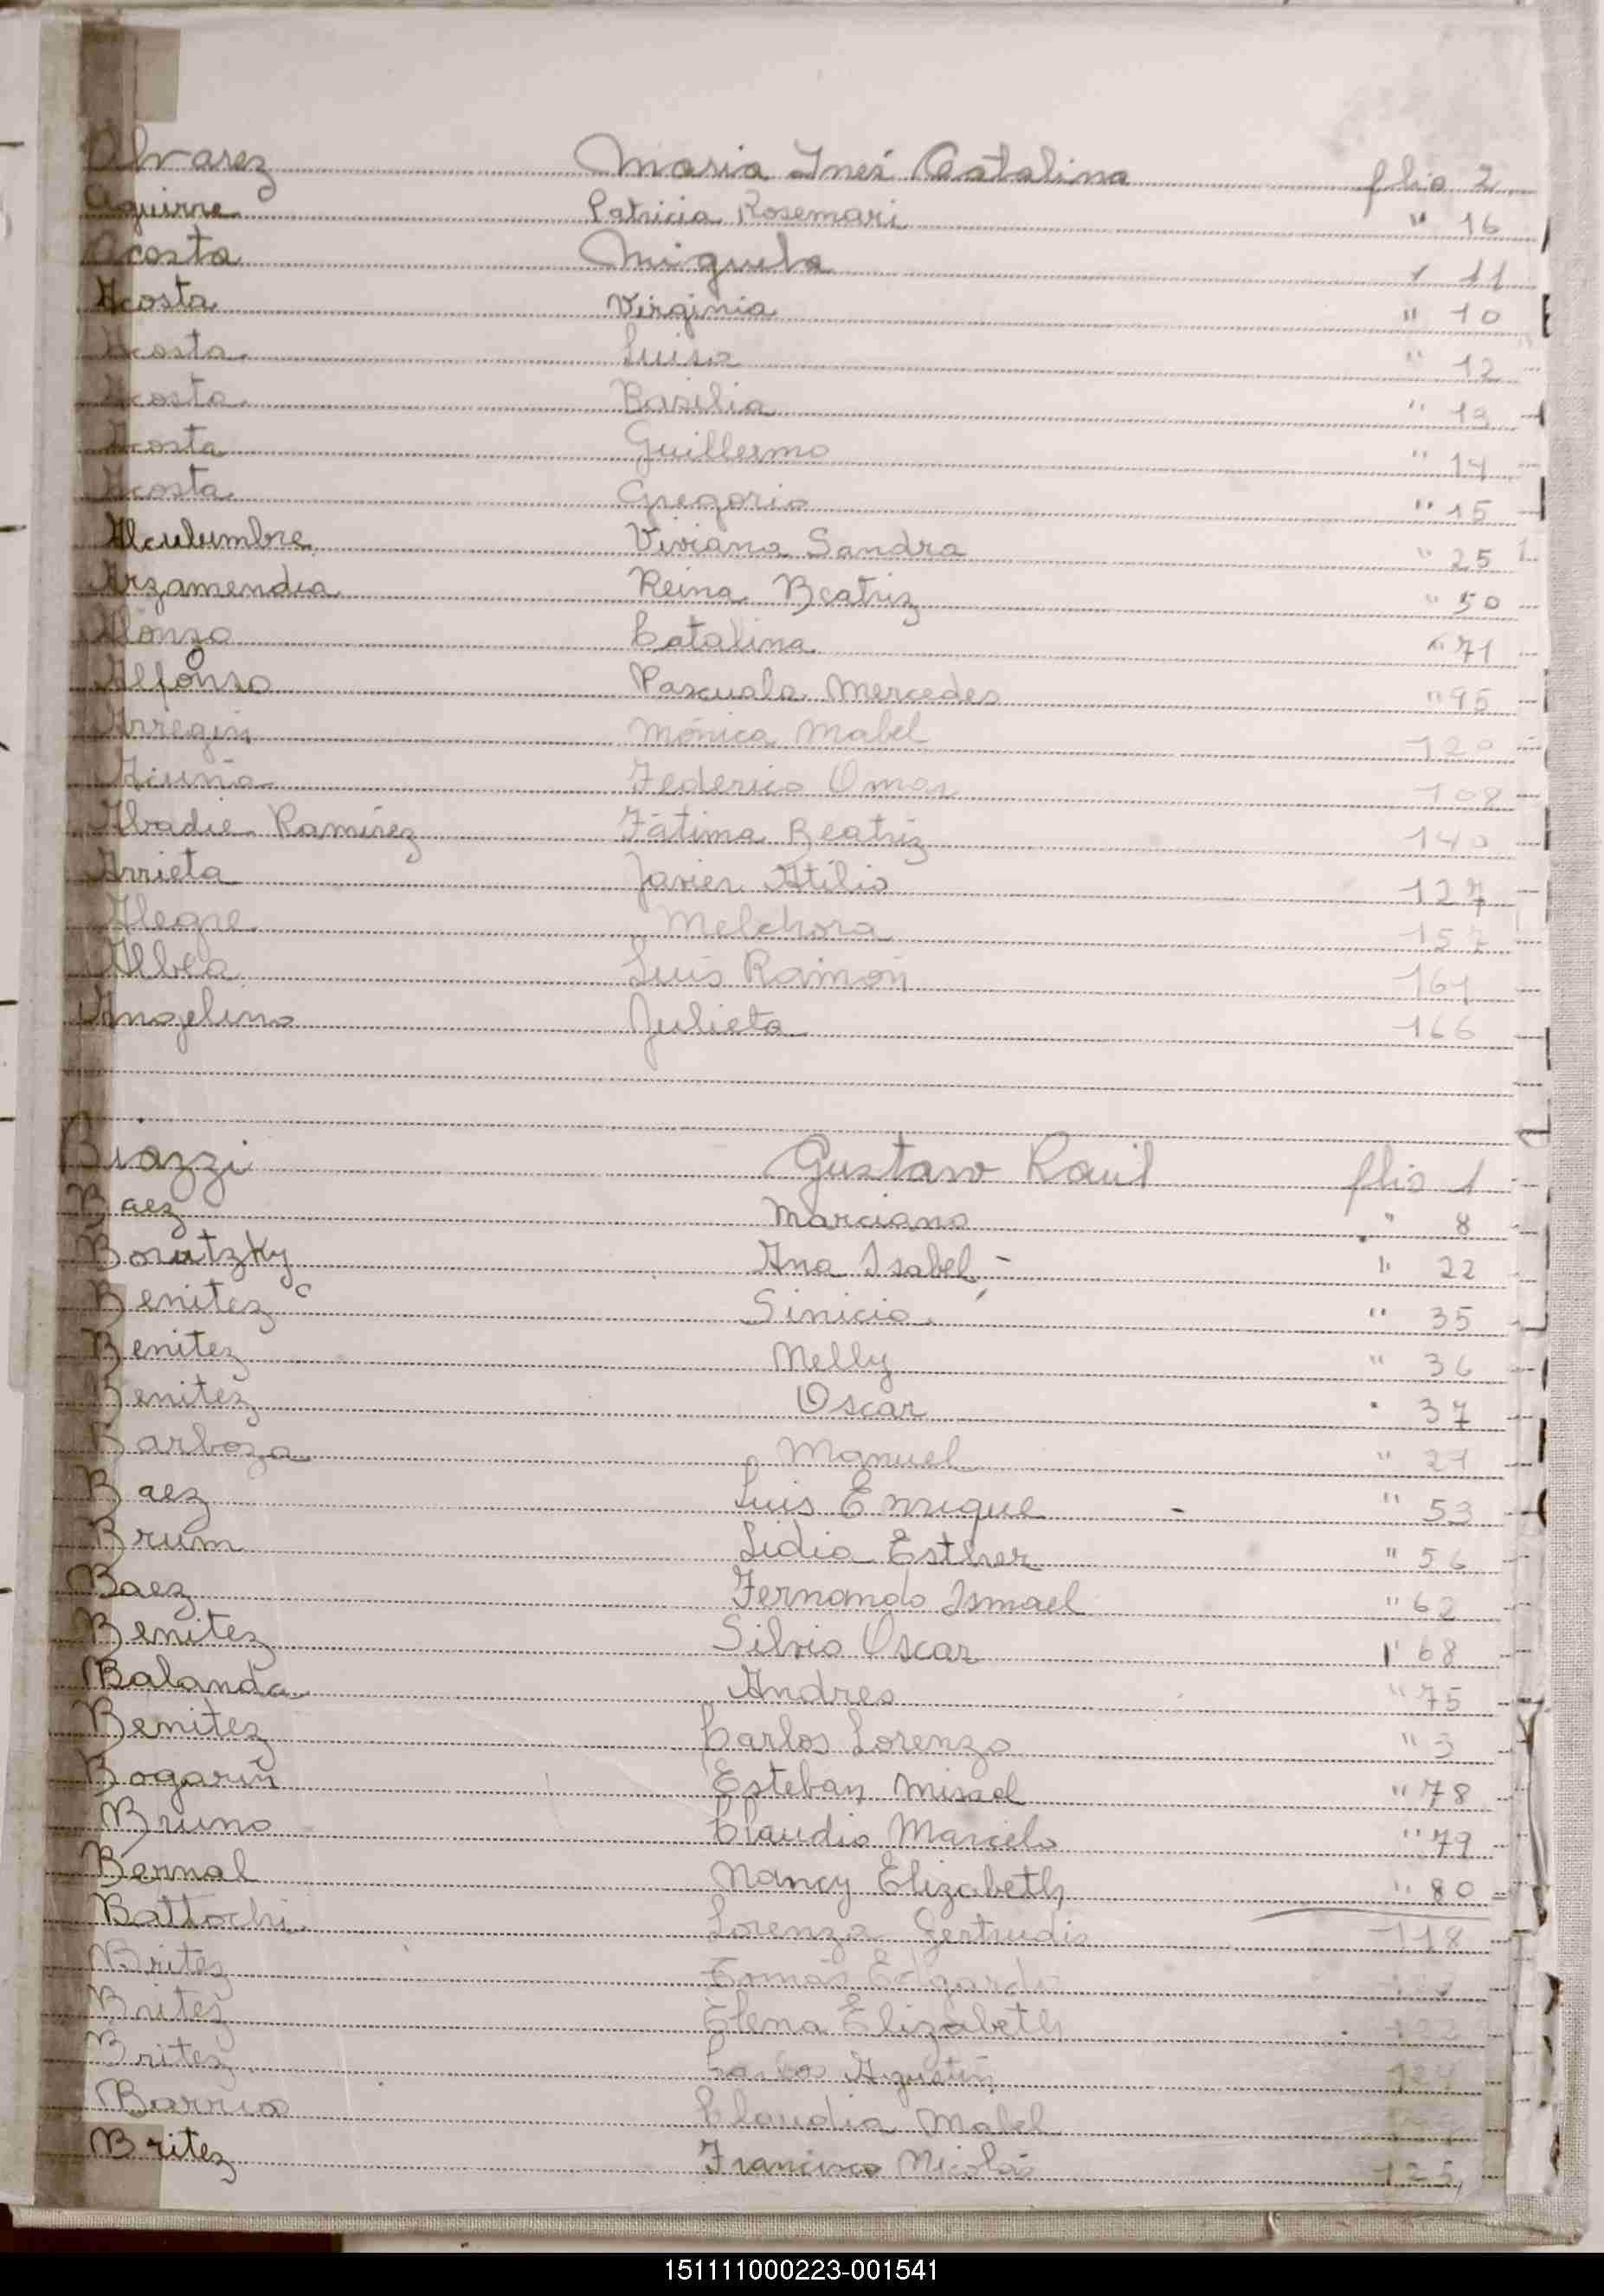 Alvarez Maria Inés Catalina flio 2
Aguirre Patricia Rosemari " 16
Acosta Miguela " 11
Acosta Virginia " 10
Acosta Luisa " 12
Acosta Basilia " 13
Acosta Guillermo " 14
Acosta Gregorio " 15
Alculumbre Viviana Sandra " 25
Arzamendia Reina Beatriz " 50
Alonzo Catalina " 71
Alfonso Pascuala Mercedes " 95
Arregin Mónica Mabel 120
Acuña Federico Omar 108
Abadie Ramirez Fátima Beatriz 140
Arrieta Javier Atilio 127
Alegre Melchora 157
Albea Luis Ramón 161
Angelino Julieta 166
Biazzi Gustavo Raúl flio 1
Baez Marciano " 8
Borutzky Ana Isabel " 22
Benitez Sinicio " 35
Benitez Nelly " 36
Benitez Oscar " 37
Barboza Manuel " 21
Baez Luis Enrique " 53
Brum Lidia Esther " 56
Baez Fernando Ismael " 62
Benitez Silvio Oscar " 68
Balanda Andres " 75
Benitez Carlos Lorenzo " 3
Bogarin Esteban Misael " 78
Bruno Claudio Marcelo " 79
Bernal Nancy Elizabeth " 80
Battochi Lorenza Gertrudis 118
Britez Tomás Edgardo
Britez Elena Elizabeth 122
Britez Carlos Agustín 124
Barrios Claudia Mabel
Britez Francisco Nicolás 125
151111000223-001541